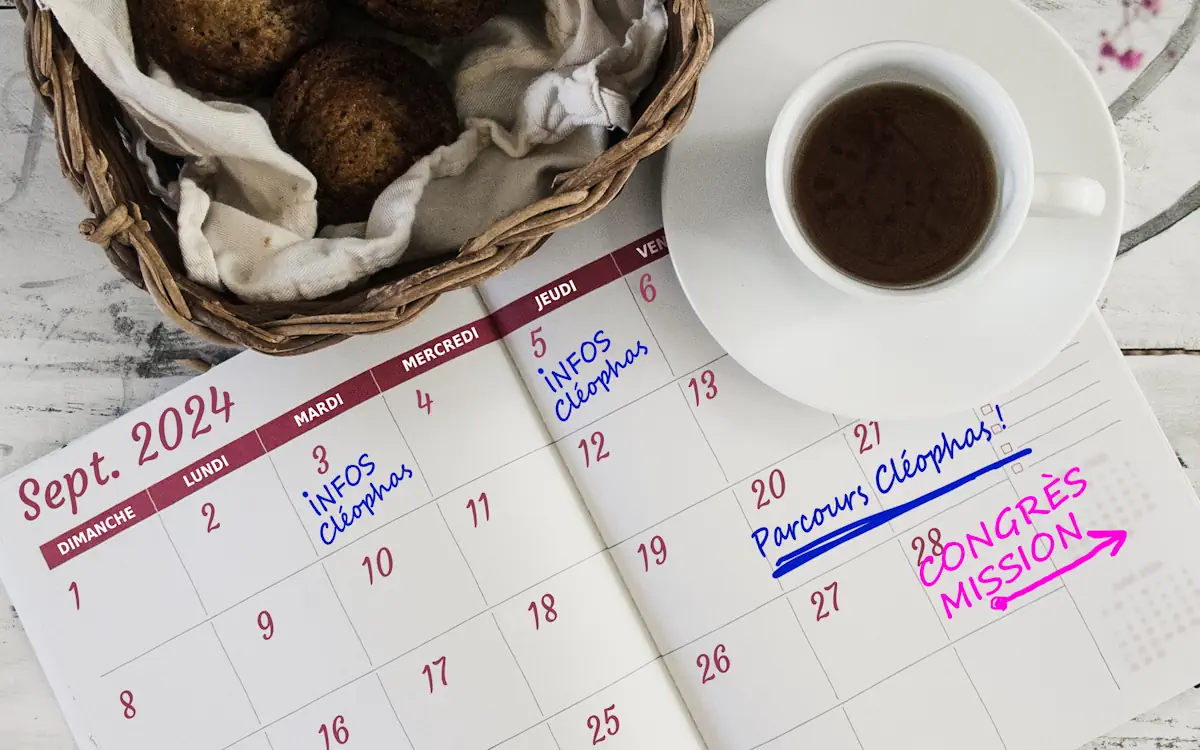 Sept. 2024
DIMANCHE LUNDI MARDI MERCREDI JEUDI VEN
1 2 3 4 5 6
iNFOS
Cléophas
iNFOS
Cléophas
8 9 10 11 12 13
16 17 18 19 20 21
Parcours Cléophas !
25 26 27 28
CONGRÈS
MISSION